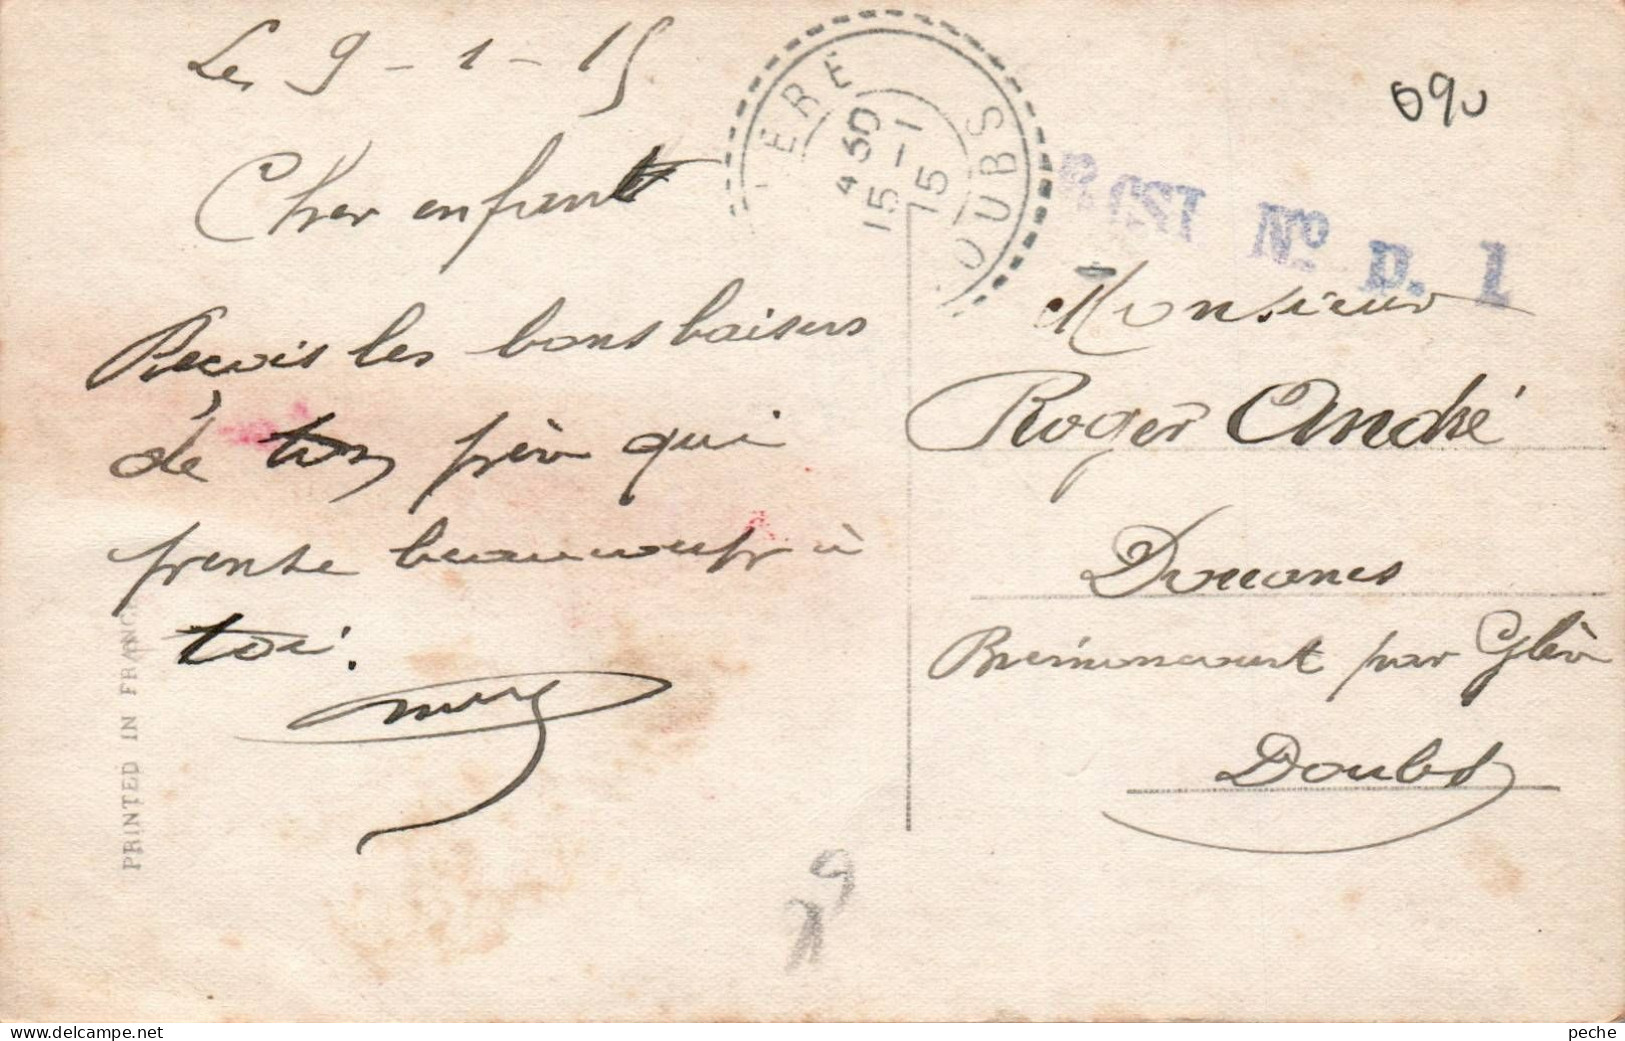 Le 9-1-15
Cher enfant
Reçois les bons baisers
de ton père qui
pense beaucoup à
toi.
PRINTED IN FRANCE
ÈRE
OUBS
4 30
15-1
15
Nº D. 1
Monsieur
Roger André
Douanes
Bremoncourt par Glère
Doubs
delcampe.net
peche